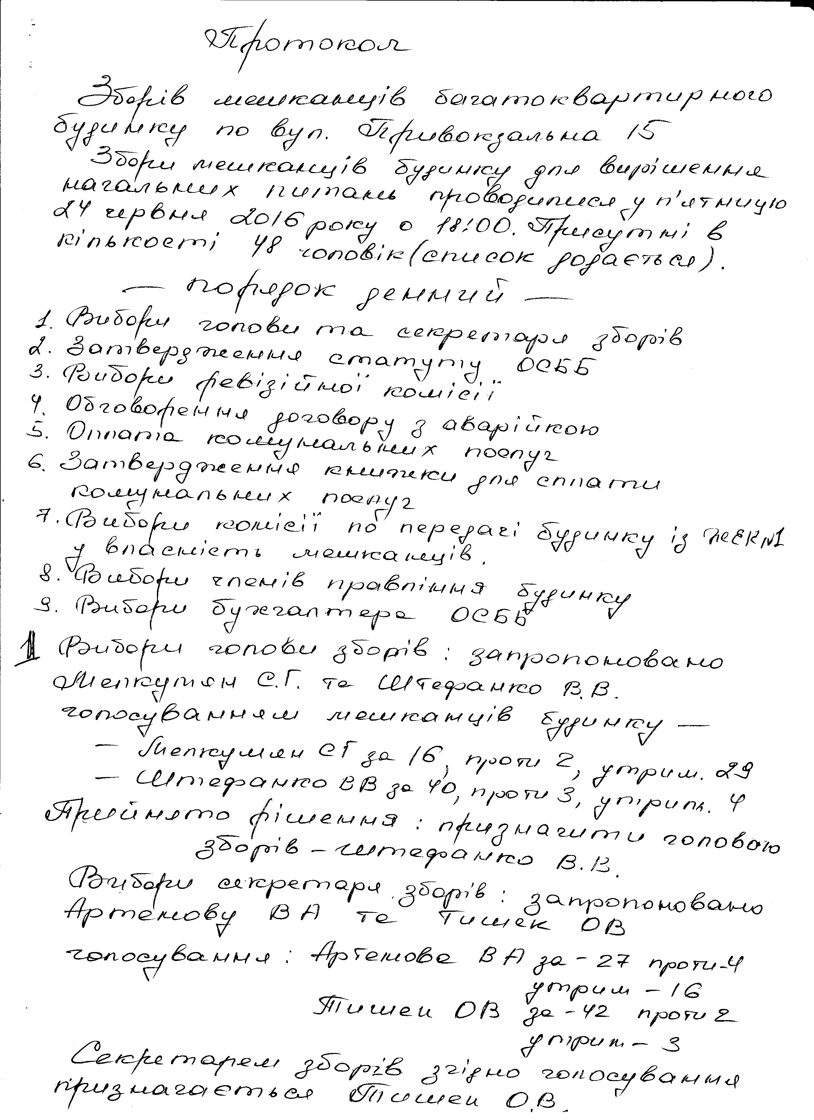 Протокол
Зборів мешканців багатоквартирного
будинку по вул. Привокзальна 15
Збори мешканців будинку для вирішення
нагальних питань проводилися у п'ятницю
24 червня 2016 року о 18:00. Присутні в
кількості 48 чоловік (список додається).
— порядок денний —
1. Вибори голови та секретаря зборів
2. Затвердження статуту ОСББ
3. Вибори ревізійної комісії
4. Обговорення договору з аварійкою
5. Оплата комунальних послуг
6. Затвердження книжки для сплати
комунальних послуг
7. Вибори комісії по передачі будинку із ЖЕК №1
у власність мешканців.
8. Вибори членів правління будинку
9. Вибори бухгалтера ОСББ
1 Вибори голови зборів : запропоновано
Мелкумян С.Г. та Штефанко В.В.
голосуванням мешканців будинку —
— Мелкумян СГ за 16, проти 2, утрим. 29
— Штефанко ВВ за 40, проти 3, утрим. 4
Прийнято рішення : призначити головою
зборів – Штефанко В.В.
Вибори секретаря зборів : запропоновано
Артемову ВА та Тишек ОВ
голосування : Артемова ВА за – 27 проти – 4
утрим – 16
Тишек ОВ за – 42 проти 2
утрим – 3
Секретарем зборів згідно голосування
призначається Тишек О.В.